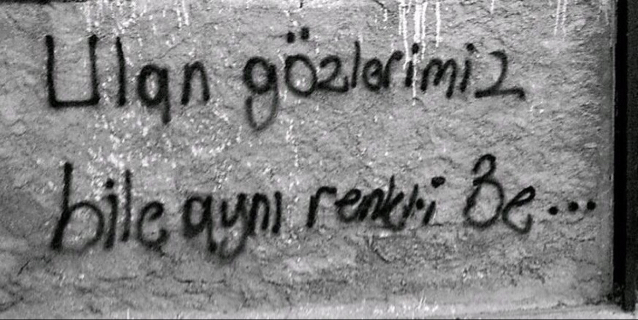 Ulan gözlerimiz
bile aynı renkti Be...